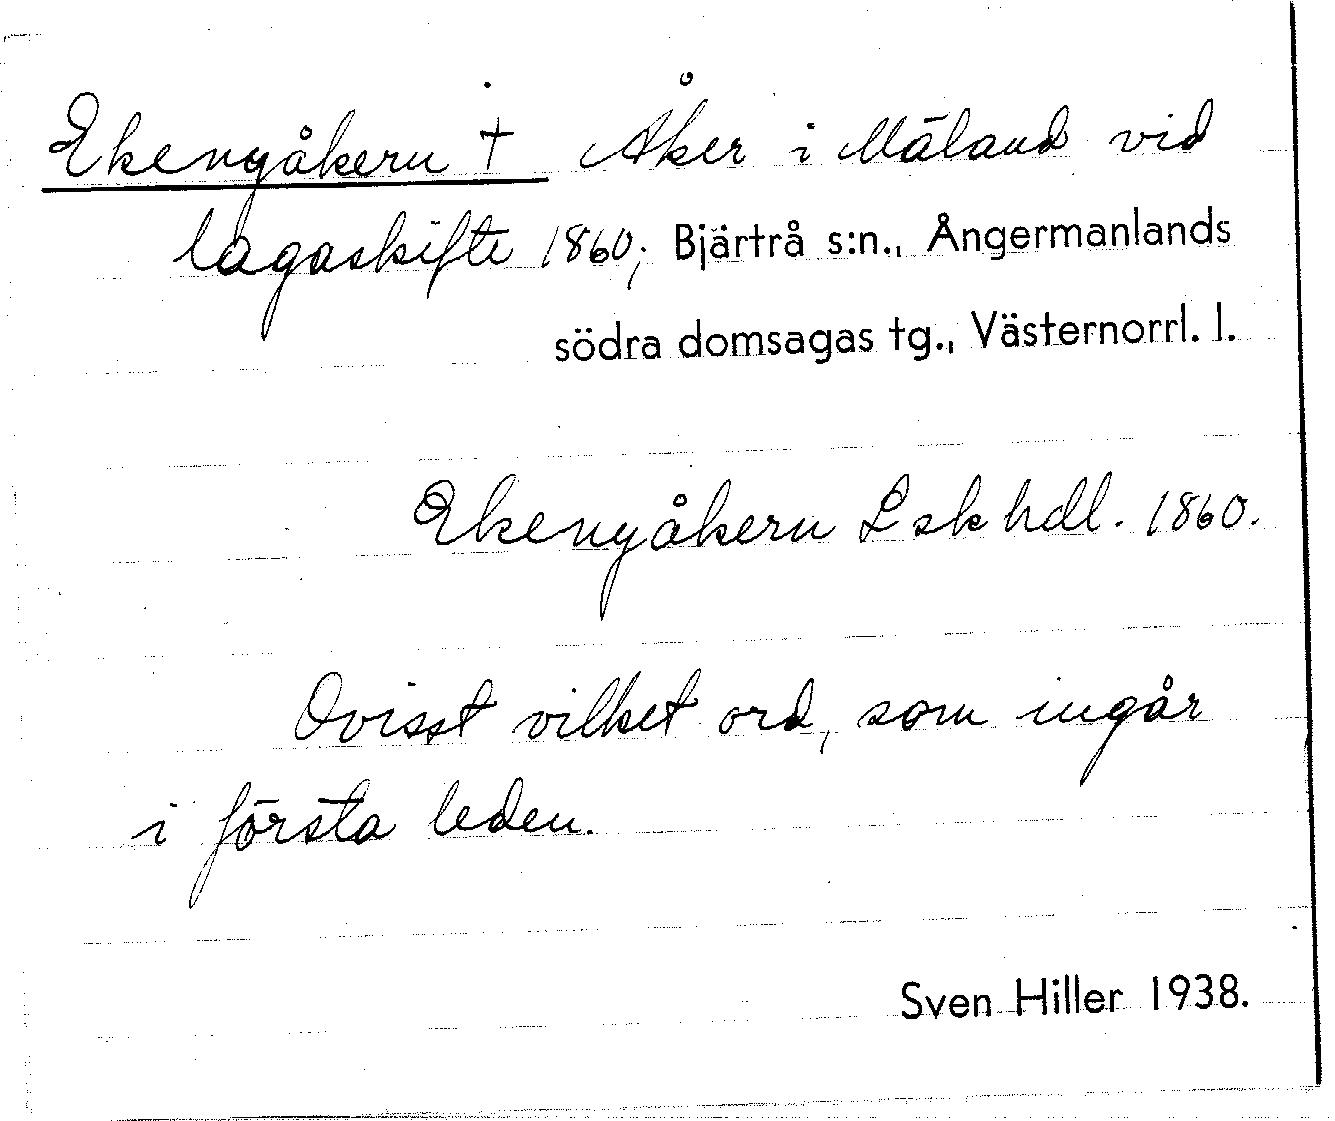 Ekenyåkern † Åker i Mäland vid
lagaskifte 1860; Bjärtrå s:n., Ångermanlands
södra domsagas tg., Västernorrl. l.
Ekenyåkern Lsk hdl. 1860.
Ovisst vilket ord, som ingår
i första leden.
Sven Hiller 1938.